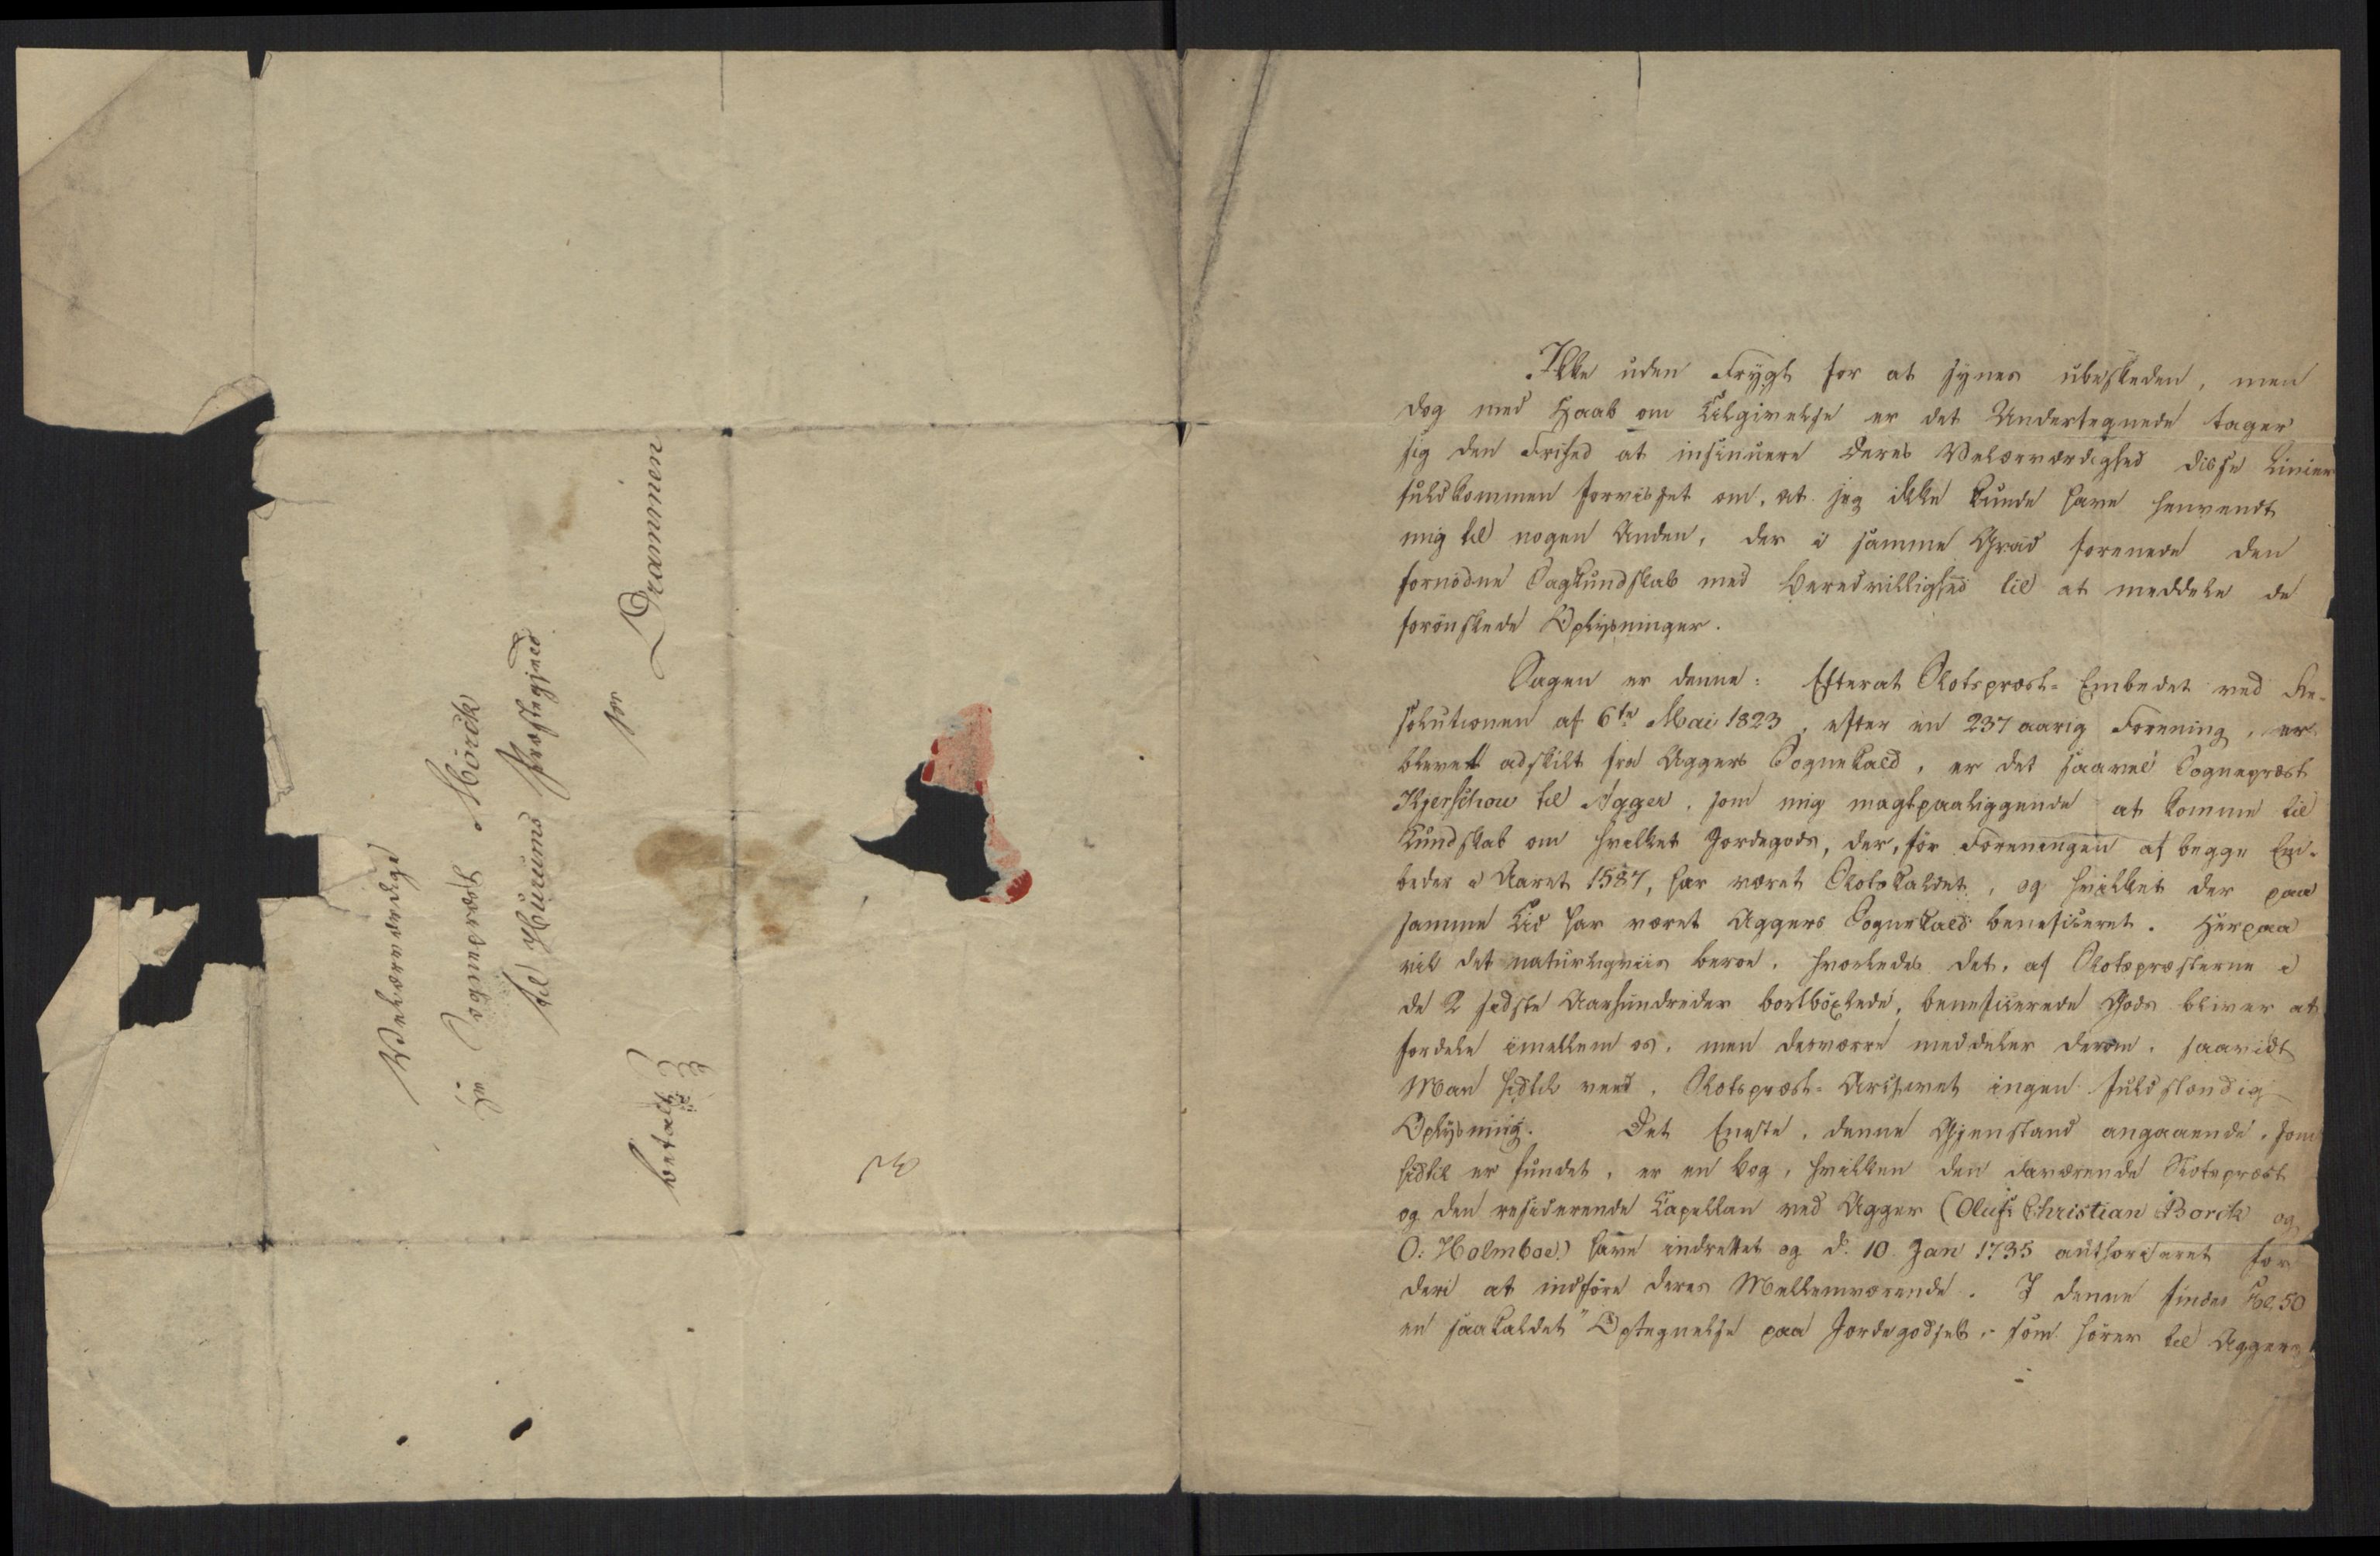 Velærværdige
Hr. Sognepræst Mörck
til Hurums Præstegjeld
pr Drammen
betalt
Ikke uden Frygt for at synes ubeskeden, men
dog med Haab om Tilgivelse er det Undertegnede tager
sig den Frihed at insinuere Deres Velærværdighed disse Linier
fuldkommen forvisset om, at jeg ikke kunde have henvendt
mig til nogen Anden, der i samme Grad forenede den
fornödne Sagkundskab med Beredvillighed til at meddele de
forönskede Oplysninger.
Sagen er denne: Efterat Slotspræst-Embedet ved Re-
solutionen af 6te Mai 1823, efter en 237 aarig Forening, er
blevet adskilt fra Aggers Sognekald, er det saavel Sognepræst
Kjerschow til Agger, som mig magtpaaliggende at komme til
Kundskab om hvilket Jordegods, der, för Foreningen af begge Em-
beder i Aaret 1587, har været Slotskaldet, og hvilket der paa
samme Tid har været Aggers Sognekald beneficeret. Herpaa
vil det naturligviis beroe, hvorledes det, af Slotspræsterne i
de 2 sidste Aarhundreder bortböxlede, beneficerede Gods bliver at
fordele imellem os, men desværre meddeler derom, saavidt
Man hidtil veed, Slotspræst-Archivet ingen fuldstændig
Oplysning. Det Eneste, denne Gjenstand angaaende, som
hidtil er fundet, er en Bog, hvilken den daværende Slotspræst
og den residerende Capellan ved Agger (Oluf Christian Borch og
O: Holmboe) have indrettet og d. 10 Jan 1735 authoriseret for
deri at indföre deres Mellemværende. I denne findes Fol. 50
en saakaldet "Optegnelse paa Jordegodset, som hörer til Aggers